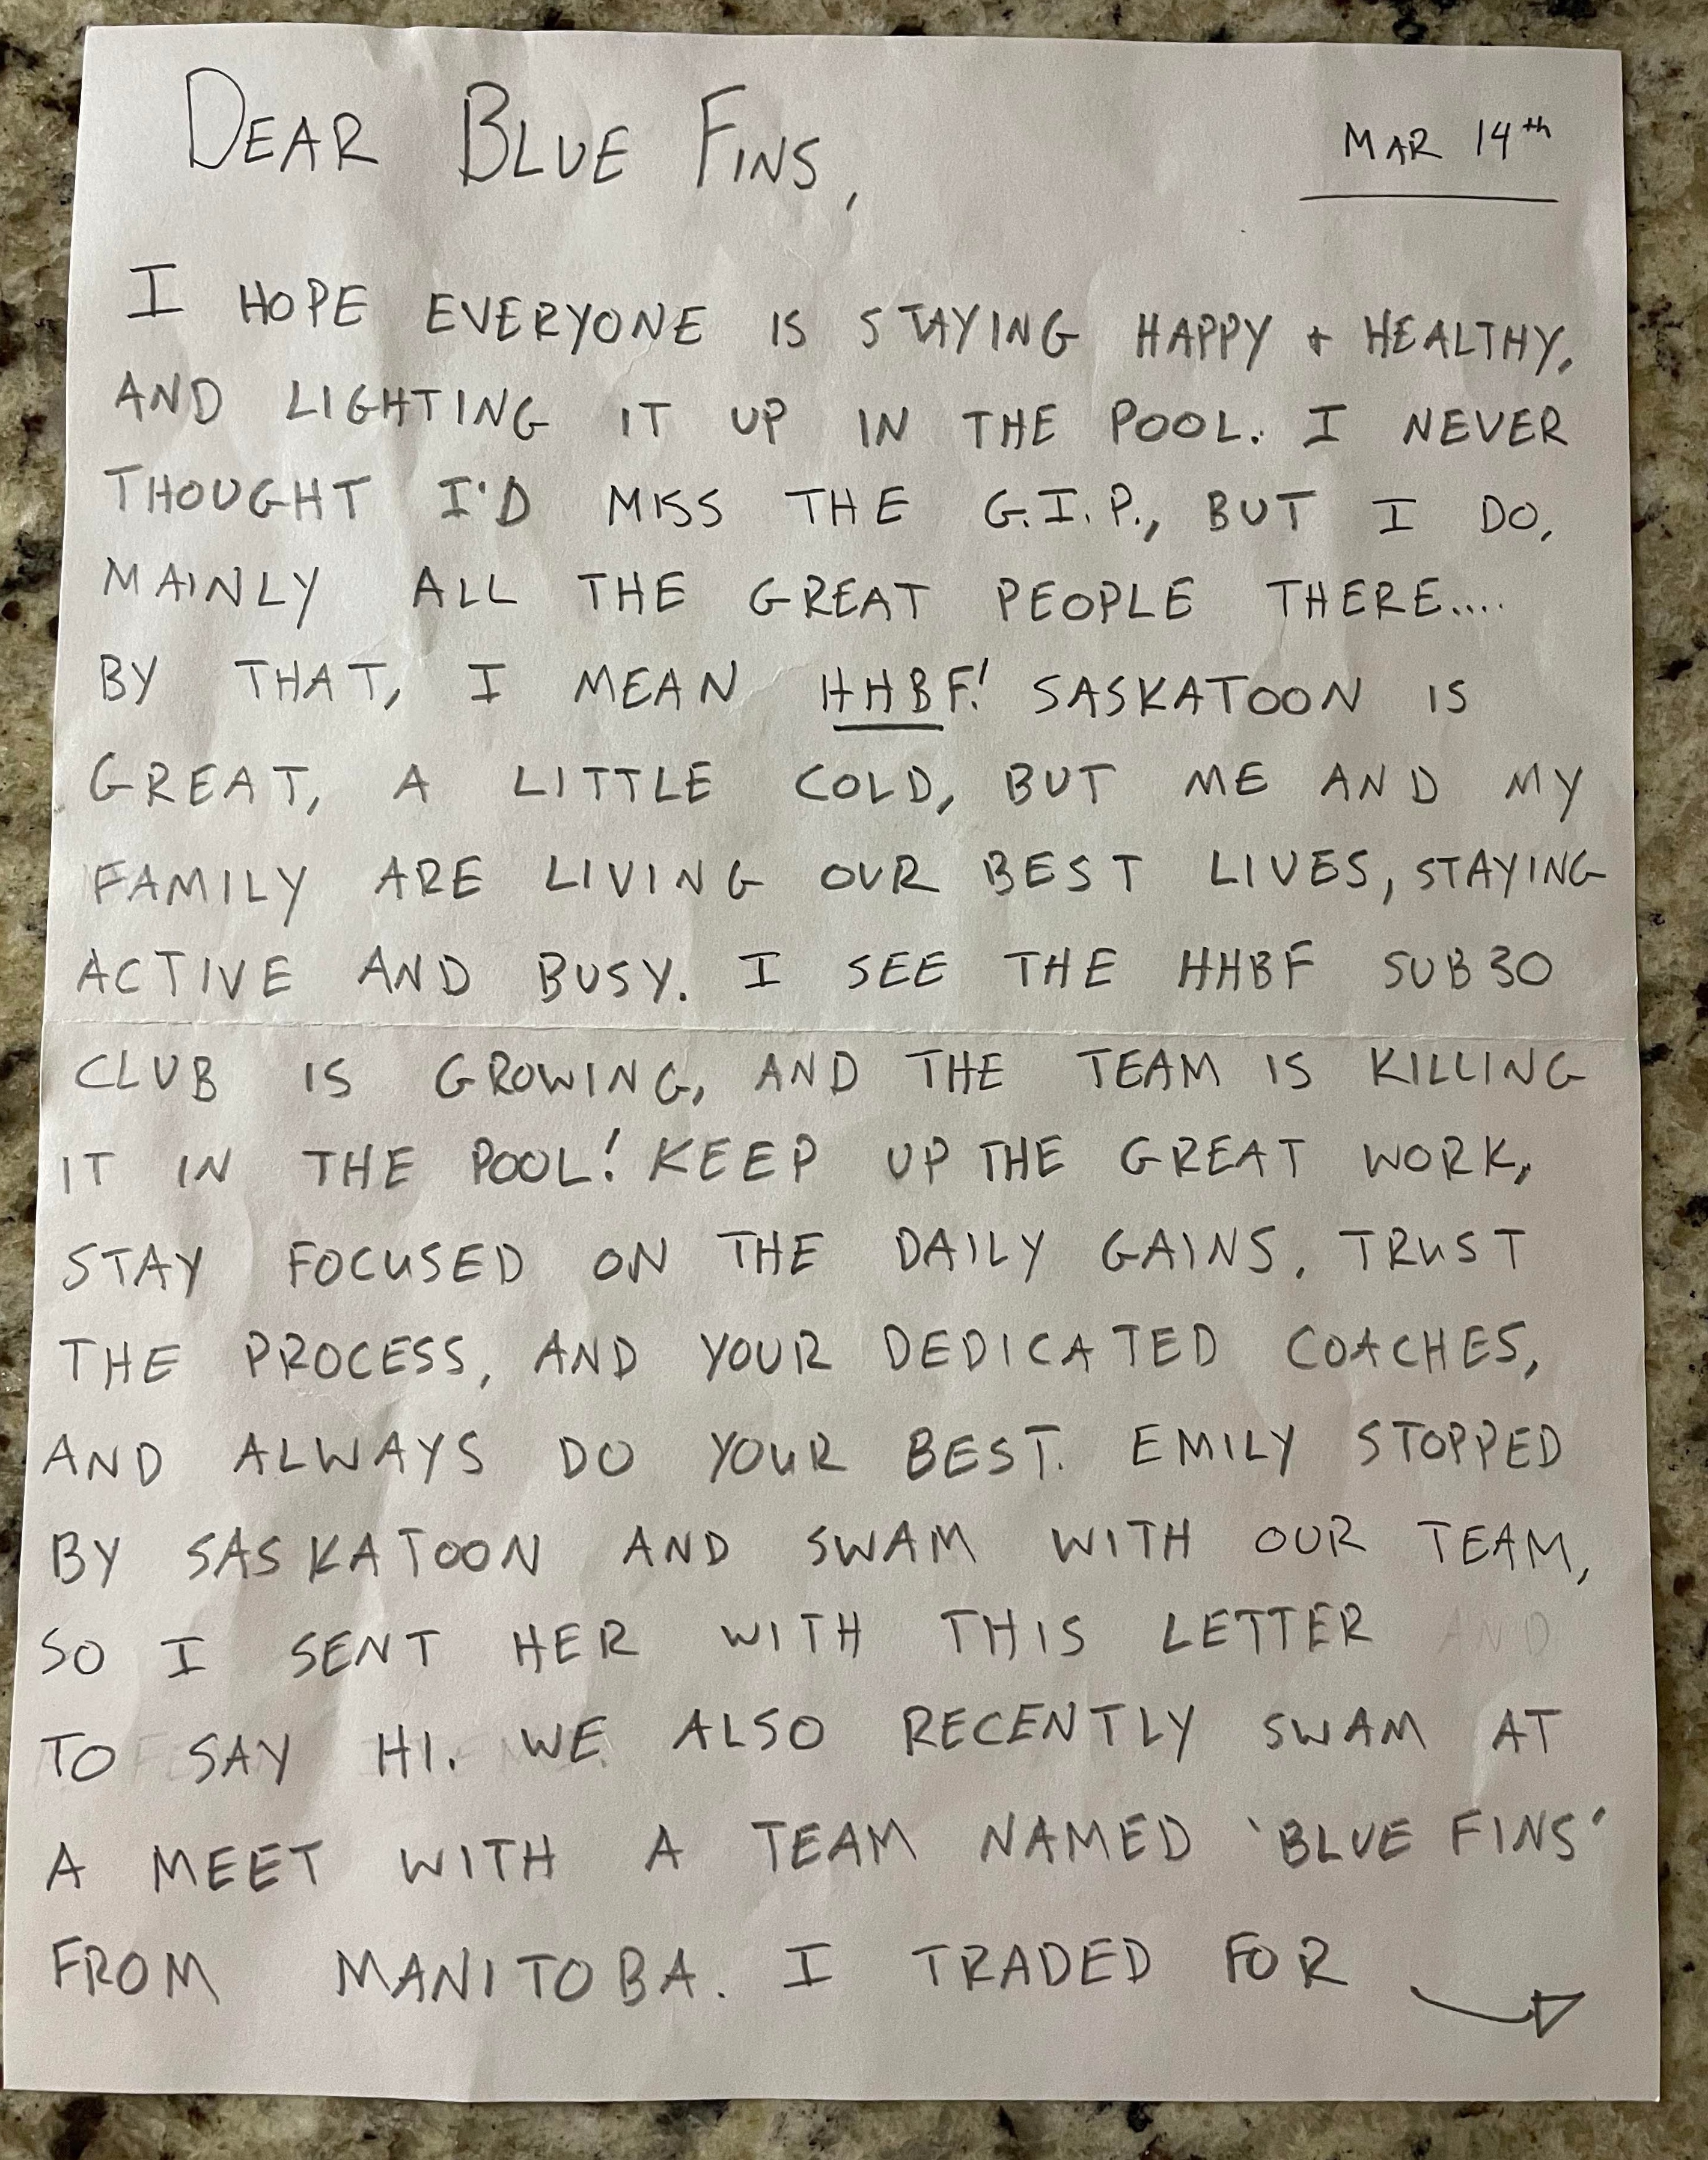 DEAR BLUE FINS,
MAR 14th
I HOPE EVERYONE IS STAYING HAPPY + HEALTHY,
AND LIGHTING IT UP IN THE POOL. I NEVER
THOUGHT I'D MISS THE G.I.P., BUT I DO,
MAINLY ALL THE GREAT PEOPLE THERE....
BY THAT, I MEAN HHBF! SASKATOON IS
GREAT, A LITTLE COLD, BUT ME AND MY
FAMILY ARE LIVING OUR BEST LIVES, STAYING
ACTIVE AND BUSY. I SEE THE HHBF SUB 30
CLUB IS GROWING, AND THE TEAM IS KILLING
IT IN THE POOL! KEEP UP THE GREAT WORK,
STAY FOCUSED ON THE DAILY GAINS. TRUST
THE PROCESS, AND YOUR DEDICATED COACHES,
AND ALWAYS DO YOUR BEST. EMILY STOPPED
BY SASKATOON AND SWAM WITH OUR TEAM,
SO I SENT HER WITH THIS LETTER AND
TO SAY HI. WE ALSO RECENTLY SWAM AT
A MEET WITH A TEAM NAMED 'BLUE FINS'
FROM MANITOBA. I TRADED FOR